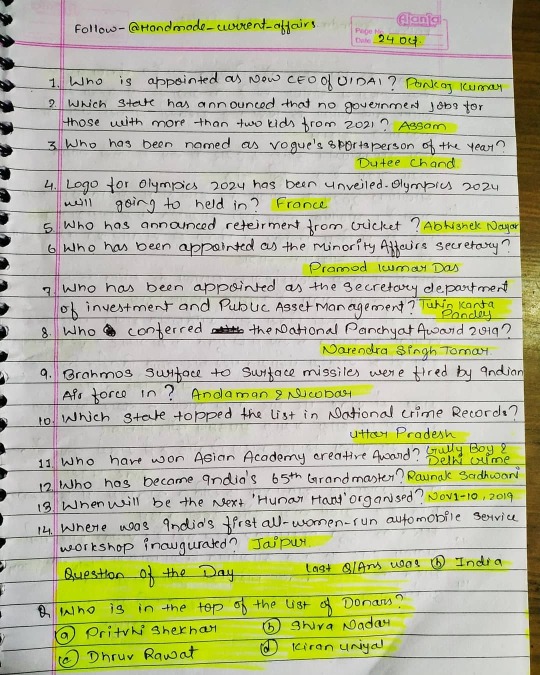 Follow - @Handmade_current_affairs
Ajanta
Page No.
Date 24 Oct
1. Who is appointed as New CEO of UIDAI? Pankaj Kumar
2. Which state has announced that no government jobs for
those with more than two kids from 2021? Assam
3. Who has been named as Vogue's Sportsperson of the Year?
Dutee Chand
4. Logo for Olympics 2024 has been unveiled. Olympics 2024
will going to held in? France
5. Who has announced reteirment from cricket? Abhishek Nayar
6. Who has been appointed as the Minority Affairs Secretary?
Pramod Kumar Das
7. Who has been appointed as the Secretary department
of investment and Public Asset Management? Tuhin Kanta
Pandey
8. Who conferred the National Panchyat Award 2019?
Narendra Singh Tomar
9. Brahmos Surface to Surface missiles were fired by Indian
Air force in? Andaman & Nicobar
10. Which state topped the list in National Crime Records?
Uttar Pradesh
11. Who have won Asian Academy creative Award? Gully Boy &
Delhi Crime
12. Who has become India's 65th Grandmaster? Raunak Sadhwani
13. When will be the Next 'Hunar Haat' organised? Nov 1-10, 2019
14. Where was India's first all-women-run automobile service
workshop inaugurated? Jaipur
Question of the Day Last Q/Ans was (b) India
Q. Who is in the top of the list of Donars?
(a) Pritvhi Shekhar (b) Shiva Nadar
(c) Dhruv Rawat (d) Kiran Uniyal